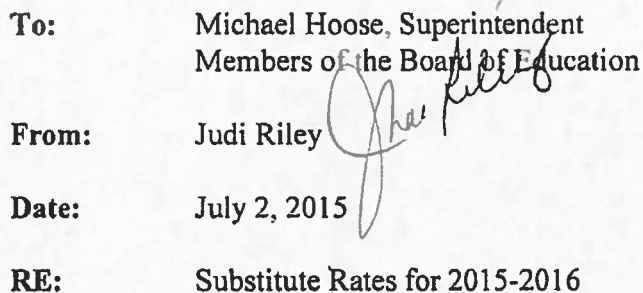 To: Michael Hoose, Superintendent
Members of the Board of Education
From: Judi Riley
Date: July 2, 2015
RE: Substitute Rates for 2015-2016